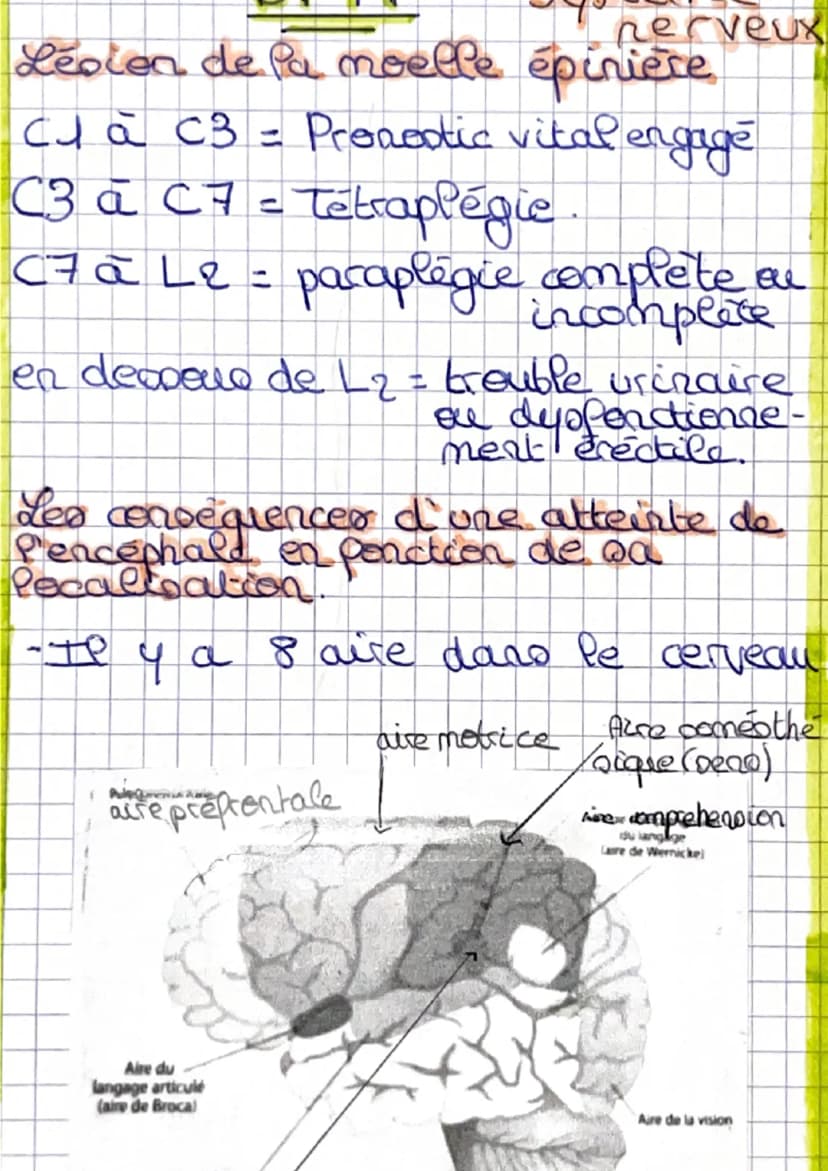 nerveux
Lésion de la moelle épinière
C1 à C3 = Pronostic vital engagé
C3 à C7 = Tétraplégie.
C7 à L2 = paraplégie complète ou
incomplète
en dessous de L2 = trouble urinaire
ou dysfonctionne-
ment éréctile.
Les conséquences d'une atteinte de
l'encéphale en fonction de sa
localisation.
- Il y a 8 aire dans le cerveau
aire motrice
Aire soméothé
sique (sens)
aire préfrontale
Aire comprehension
du langage
(aire de Wernicke)
Aire du
langage articulé
(aire de Broca)
Aire de la vision